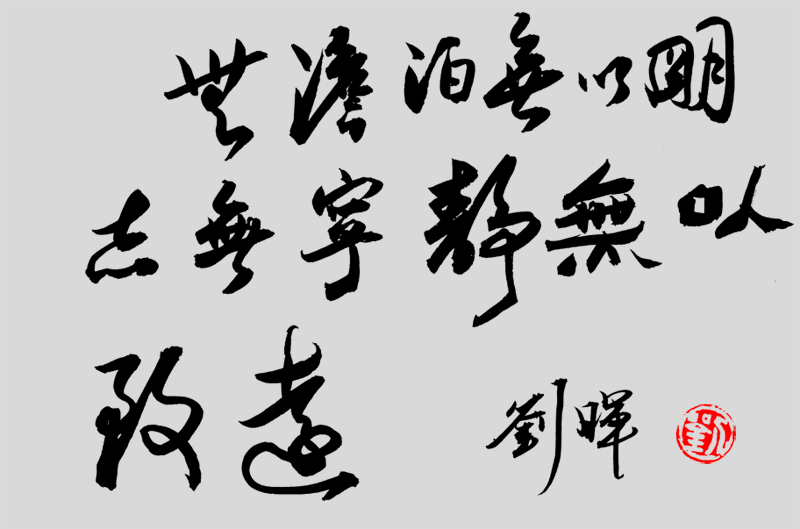 無澹泊無以明
志無寧靜無以
致遠 劉暉